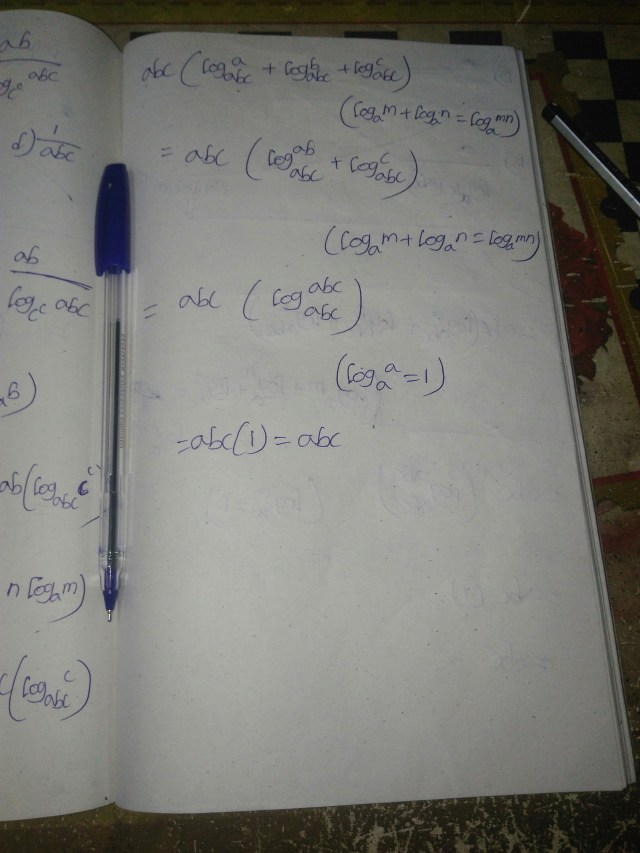 ab
log_c^c abc
d) 1/abc
ab
log_c^c abc
ab)
ab(log_abc c^c
n log_a m)
c(log_abc c)
abc (log_abc a + log_abc b + log_abc c)
(log_a m + log_a n = log_a mn)
= abc (log_abc ab + log_abc c)
(log_a m + log_a n = log_a mn)
= abc (log_abc abc)
(log_a a = 1)
= abc(1) = abc